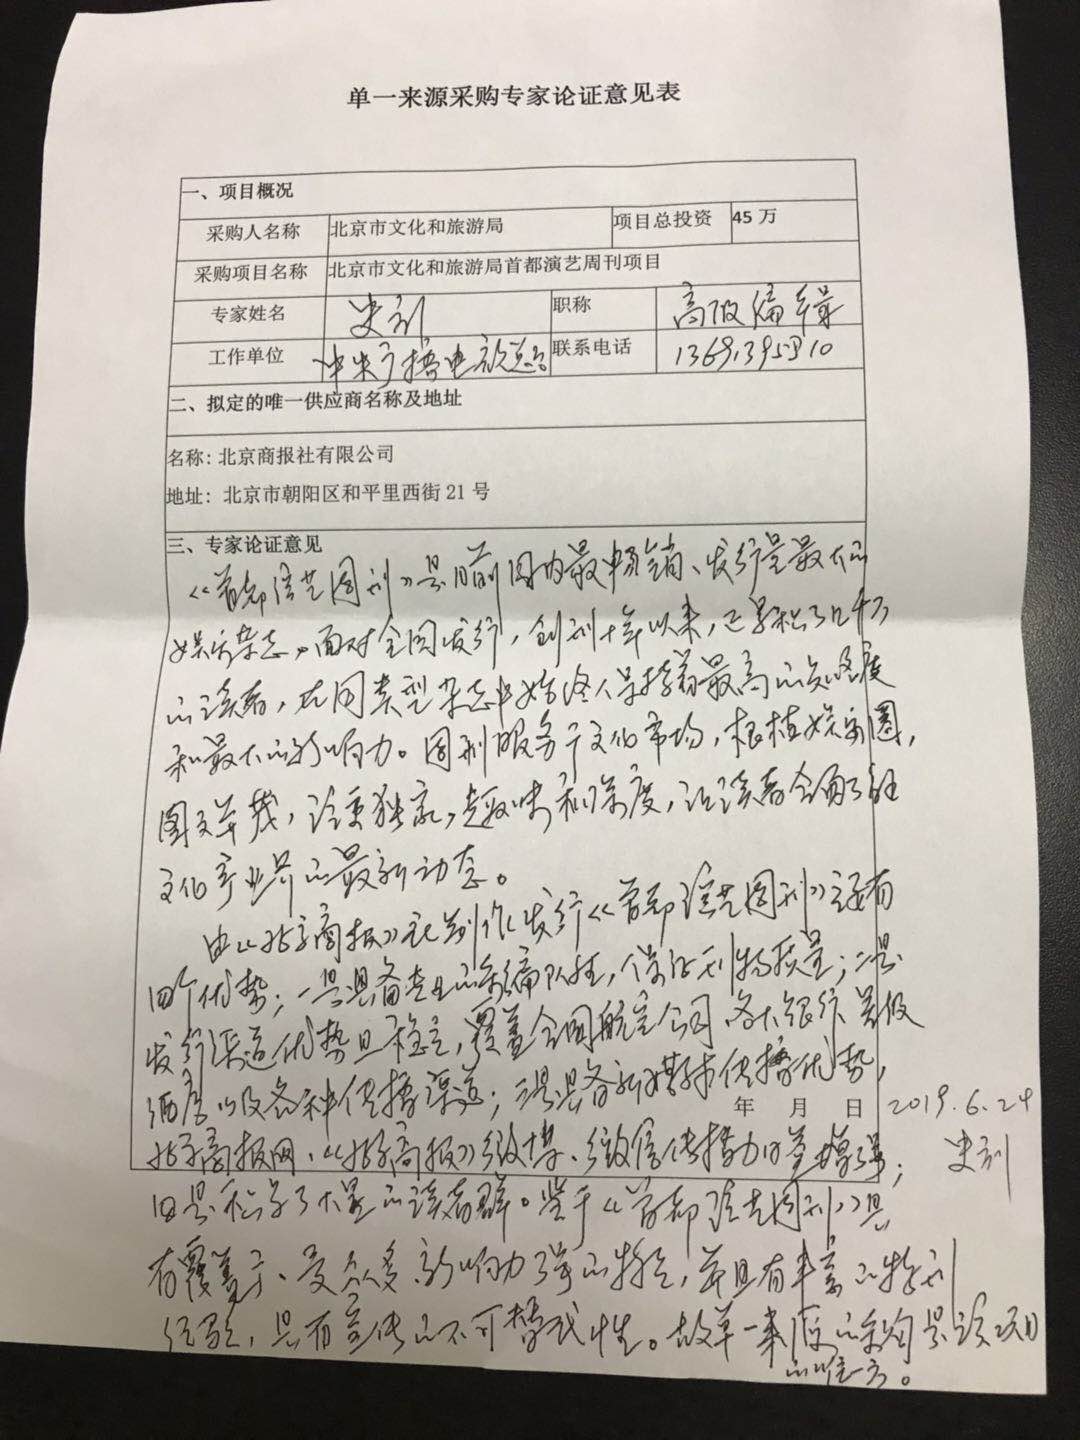 单一来源采购专家论证意见表
一、项目概况
采购人名称 北京市文化和旅游局 项目总投资 45 万
采购项目名称 北京市文化和旅游局首都演艺周刊项目
专家姓名 史利 职称 高级编辑
工作单位 中央广播电视总台 联系电话
二、拟定的唯一供应商名称及地址
名称: 北京商报社有限公司
地址: 北京市朝阳区和平里西街 21 号
三、专家论证意见
《首都演艺周刊》是目前国内最畅销、发行量最大的
娱乐杂志,面对全国发行,创刊十年以来,已累积了几十万
的读者,在同类型杂志中始终保持着最高的知名度
和最大的影响力。周刊服务于文化市场,根植娱乐圈,
图文并茂,注重独家,趣味和深度,让读者全面了解
文化产业界的最新动态。
由《北京商报》社制作发行《首都演艺周刊》还有
四个优势;一是具备专业的采编队伍,保证刊物质量;二是
发行渠道优势且稳定,覆盖全国航空公司、各大银行、星级
酒店以及各种传播渠道;三是具备新媒体传播优势,
年 月 日 2019.6.24
北京商报网、《北京商报》微博、微信传播力日益增强; 史利
四是积累了大量的读者群。鉴于《首都演艺周刊》具
有覆盖广、受众多、影响力强的特点,并且有丰富的特刊
经验,具有宣传的不可替代性。故单一来源的采购是该项目
的唯一方。